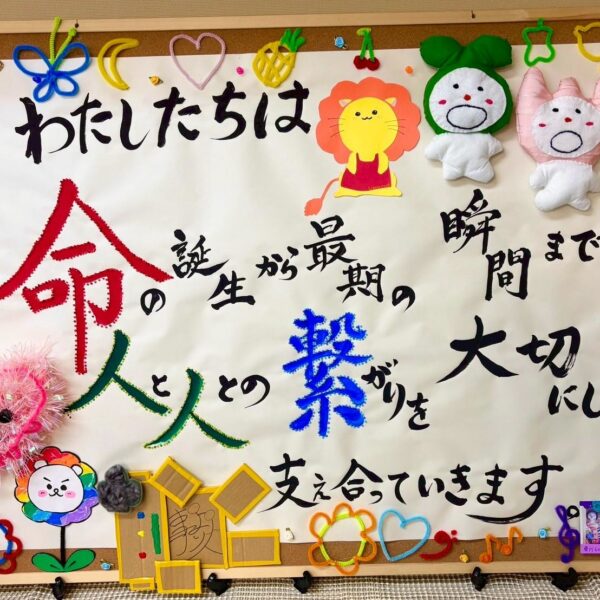 わたしたちは
命の誕生から最期の瞬間まで
人と人との繋がりを大切にし
支え合っていきます